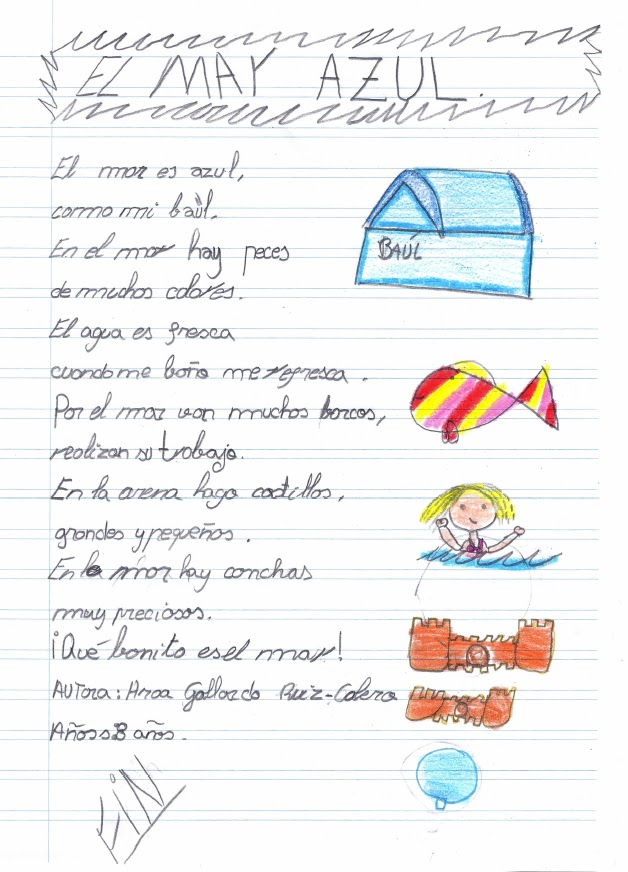 EL MAY AZUL.
El mar es azul,
como mi baúl.
BAÚL
En el mar hay peces
de muchos colores.
El agua es fresca
cuando me baño me refresca.
Por el mar van muchos barcos,
realizan su trabajo.
En la arena hago castillos,
grandes y pequeños.
En la mar hay conchas
muy preciosas.
¡Qué bonito es el mar!
Autora: Ainoa Gallardo Ruiz-Calero
Años: 8 años.
FIN